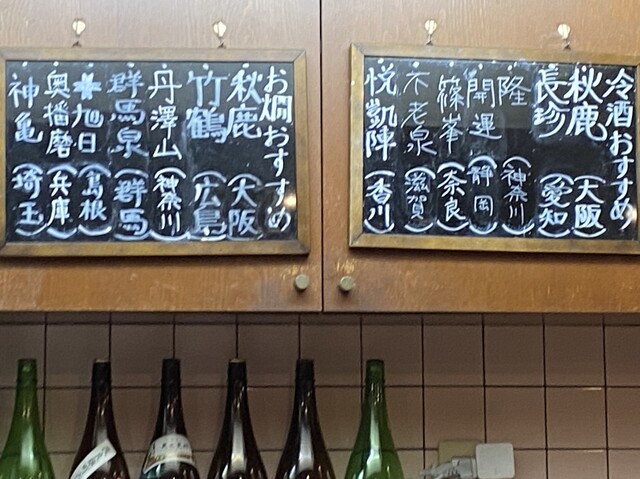 冷酒おすすめ
秋鹿(大阪)
長珍(愛知)
隆(神奈川)
開運(静岡)
篠峯(奈良)
不老泉(滋賀)
悦凱陣(香川)
お燗おすすめ
秋鹿(大阪)
竹鶴(広島)
丹澤山(神奈川)
群馬泉(群馬)
旭日(島根)
奥播磨(兵庫)
神亀(埼玉)